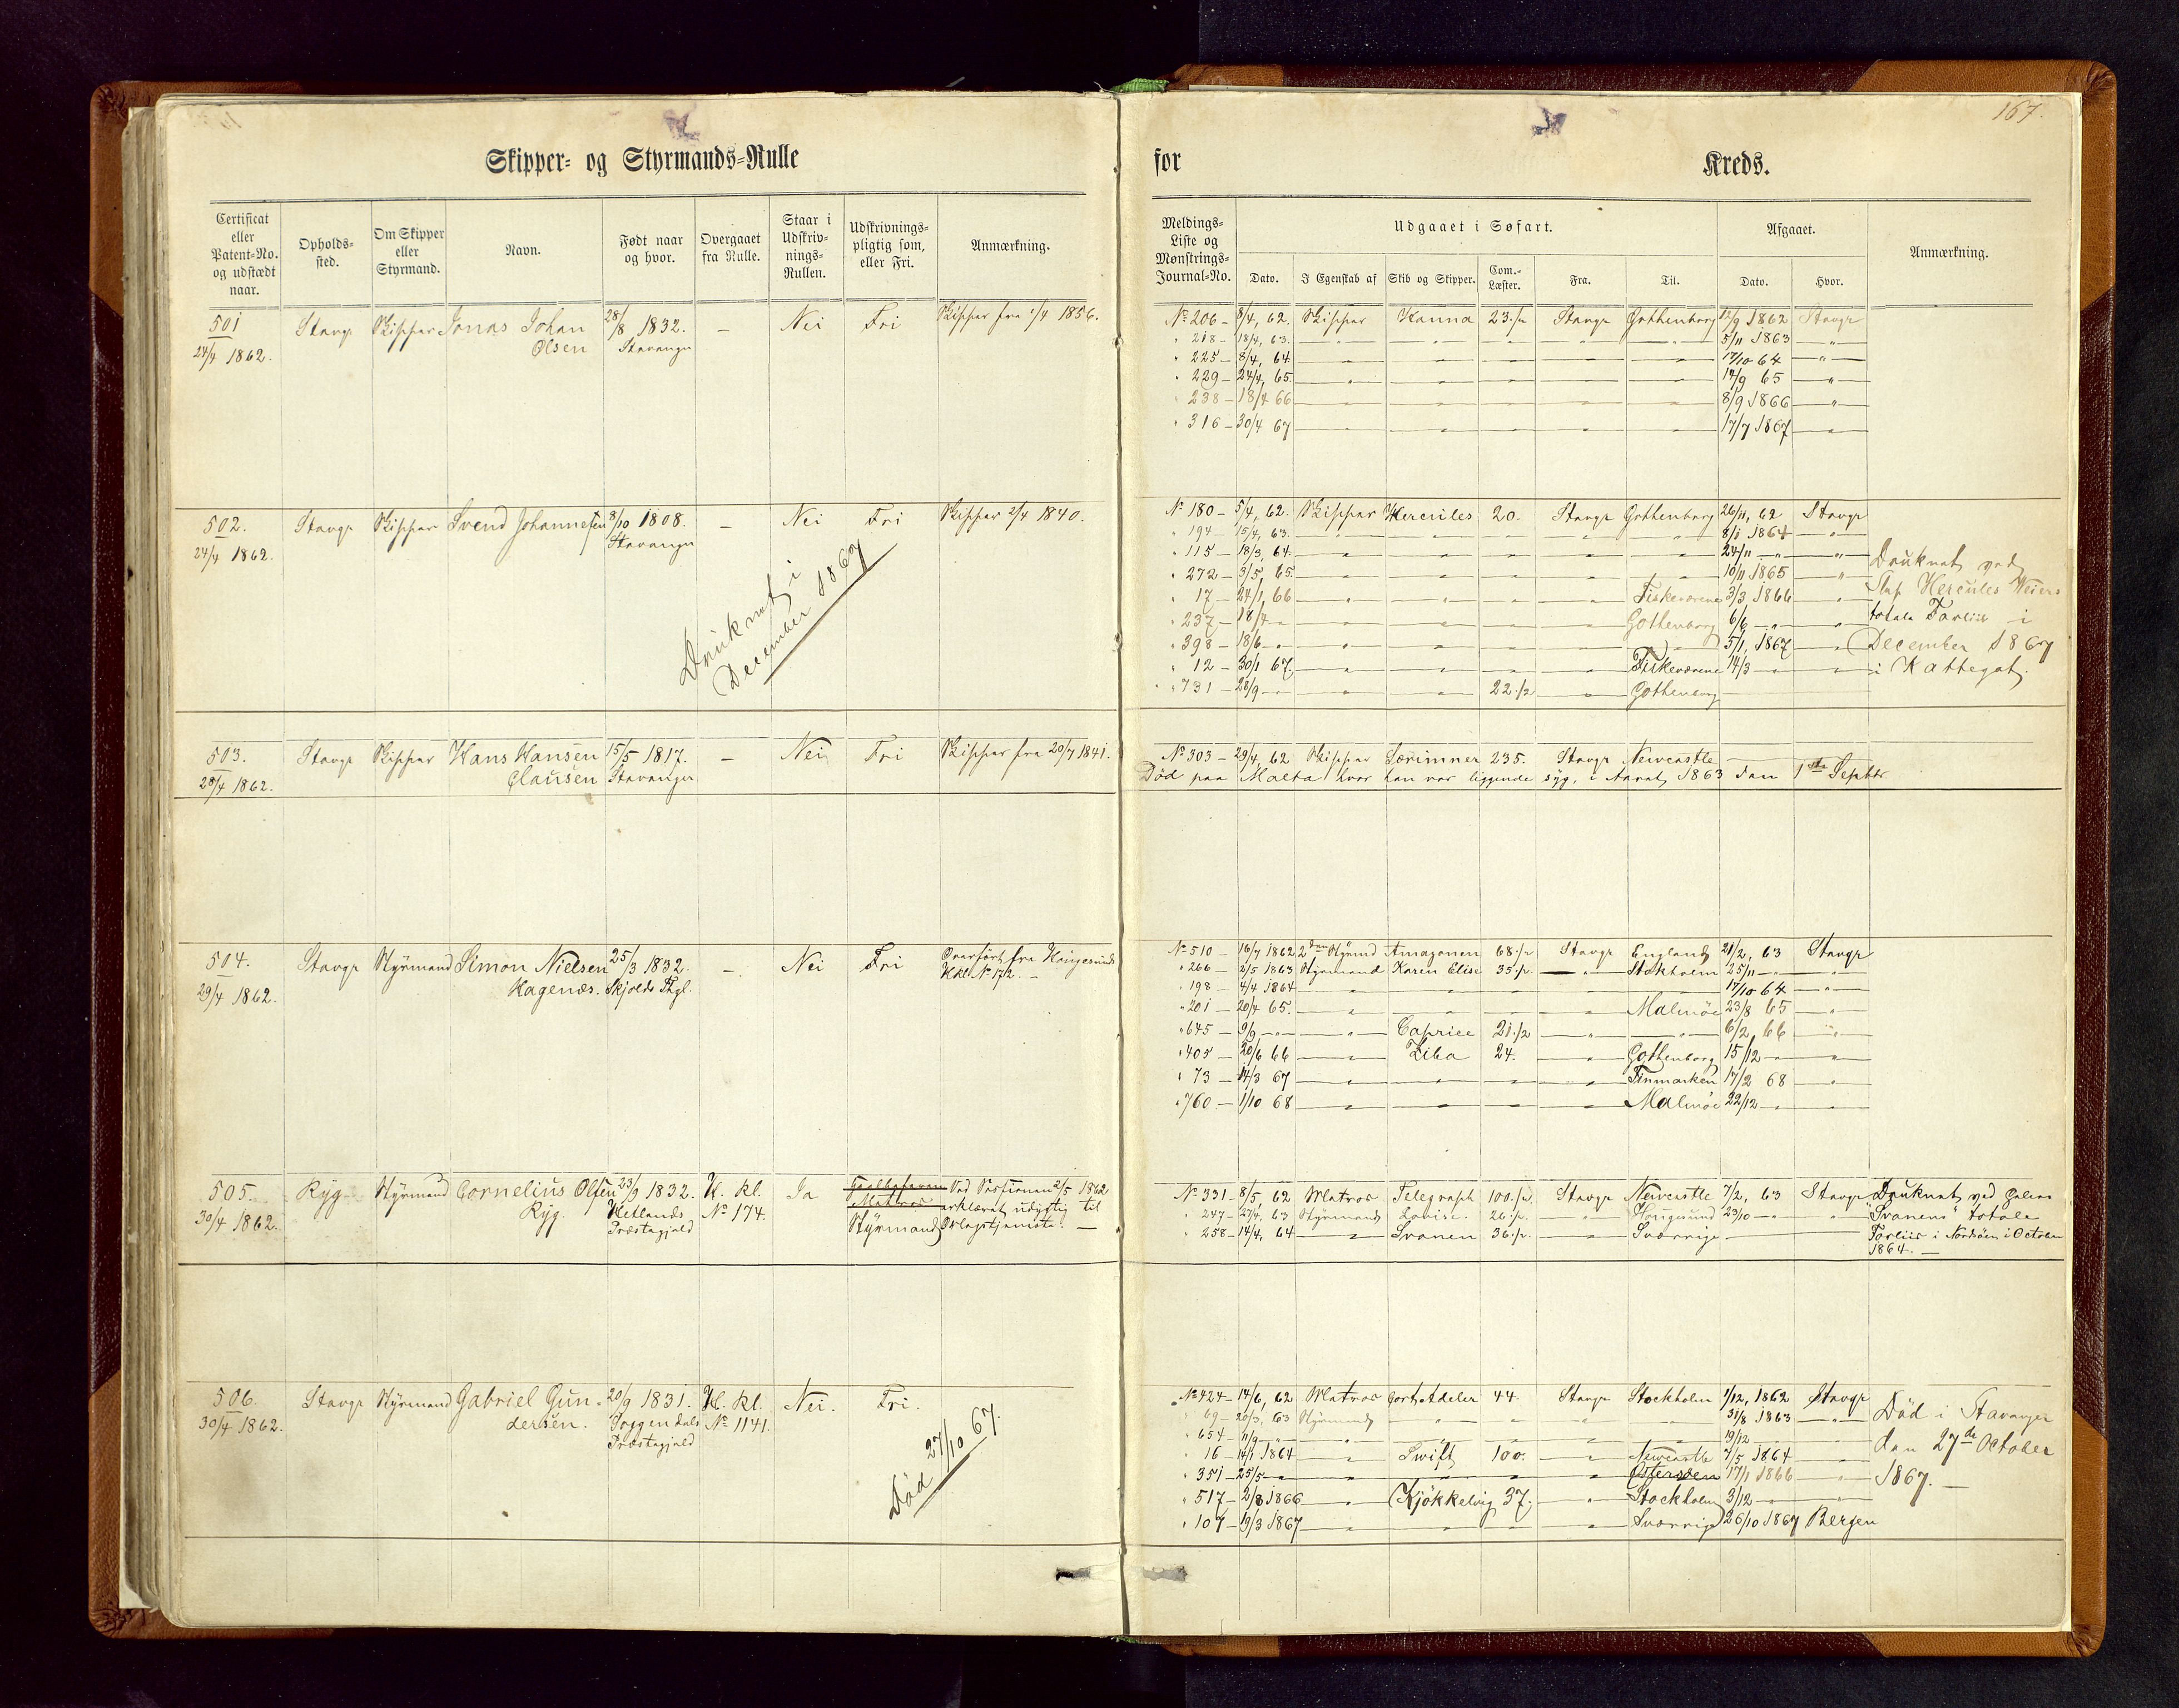 Skipper- og Styrmands-Rulle
Certificat eller Patent-No. og udstædt naar.
Opholds-sted.
Om Skipper eller Styrmand.
Navn.
Født naar og hvor.
Overgaaet fra Rulle.
Staar i Udskriv-nings-Rullen.
Udskrivnings-pligtig som, eller Fri.
Anmærkning.
501 Stavgr Skipper Jonas Johan 28/8 1832. — Nei Fri Skipper fra 1/4 1856.
24/4 1862. Olsen Stavanger
502. Stavgr Skipper Svend Johannesen 3/10 1808. — Nei Fri Skipper 2/4 1840.
24/4 1862. Stavanger
Druknet i
December 1867
503. Stavgr Skipper Hans Hansen 15/5 1817. — Nei Fri Skipper fra 20/7 1841.
28/4 1862. Clausen Stavanger
504. Stavgr Styrmand Simon Nielsen 25/3 1832. — Nei Fri Overført fra Haugesunds
29/4 1862. Hagenæs. Skjolds Thgl. Hkl. No 172. —
505. Ryg Styrmand Cornelius Olsen 23/9 1832. H. kl. Ja Ved Sessionen 2/5 1862
30/4 1862. Ryg. Hetlands No 174. Matros erklæret udygtig til
Præstegjeld Styrmand Orlogstjeneste. —
506. Stavgr Styrmand Gabriel Gun- 20/9 1831. H. kl. Nei. Fri.
30/4 1862. dersen. Soggendals No 1141.
Præstegjeld
Død 27/10 67.
for Kreds.
167.
Meldings-Liste og Mønstrings-Journal-No.
Udgaaet i Søfart.
Dato.
I Egenskab af
Skib og Skipper.
Com.-Læster.
Fra.
Til.
Afgaaet.
Dato.
Hvor.
Anmærkning.
No 206 — 8/4, 62. Skipper Hanna 23 1/2 Stavgr Gothenborg 12/9 1862 Stavgr
" 218 — 18/4, 63. — " — " — " — " — " 5/11 1863 — "
" 225 — 8/4, 64 — " — " — " — " — " 17/10 64 — "
" 229 — 24/4, 65. — " — " — " — " — " 14/9 65 — "
" 238 — 18/4 66 — " — " — " — " — " 8/9 1866 — "
" 316 — 30/4 67 — " — " — " — " — " 17/7 1867 — "
No 180 — 5/4, 62. Skipper Hercules 20. Stavgr Gothenborg 26/11, 62 Stavgr
" 194 — 15/4, 63. — " — " — " — " — " 8/1 1864 — "
" 115 — 18/3, 64. — " — " — " — " — " 24/11 — " — " Druknet ved
" 272 — 3/5, 65. — " — " — " — " — " 10/11 1865 — "
" 17 — 24/1, 66 — " — " — " — " Fiskeværene 3/3 1866 — " Hercules
" 237 — 18/4 — " — " — " — " — " Gothenborg 6/6 — " — " totale Forliis i
" 398 — 18/6 — " — " — " — " — " — " 5/1, 1867 — " December 1867
" 12 — 30/1 67. — " — " — " — " Fiskeværene 14/3 — " — " i Kattegat.
" 731 — 28/9 — " — " — " 22 1/2 — " Gothenborg
No 303 — 29/4, 62 Skipper Særimner 235. Stavgr Newcastle —
Død paa Malta hvor han var liggende syg, i Aaret 1863 den 1ste Septbr
No 510 — 16/7 1862 2den Styrmd Amazonen 68 1/2 Stavgr England 21/2, 63 Stavgr
" 266 — 2/5 1863 Styrmand Karen Elise 35 1/2 — " Stokholm 25/11 — " — "
" 198 — 4/4 1864 — " — " — " — " — " 17/10 64 — "
" 201 — 20/4 65. — " — " — " — " Malmøe 23/8 65 — "
" 645 — 9/9 — " — " Caprice 21 1/2 — " — " 6/2, 66 — "
" 405 — 20/6 66 — " Ziba 24. — " Gothenborg 15/12 — " — "
" 73 — 14/3 67 — " — " — " — " Finmarken 17/2 68 — "
" 760 — 1/10 68 — " — " — " — " Malmöe 22/12 — " — "
No 331 — 8/5, 62 Matros Telegraph 100 1/2 Stavgr Newcastle 7/2, 63 Stavgr Druknet ved Galeas
" 247 — 27/4, 63 Styrmand Lovise. 26 1/2 — " Hougesund 23/10 — " — " "Svanens" totale
" 258 — 14/4, 64 — " Svanen 36 1/2 — " Sværrige — Forliis i Nordsöen i October
1864. —
No 424 — 14/6, 62 Matros Cort Adeler 44 Stavgr Stockholm 1/12, 1862 Stavgr
" 69 — 20/3, 63 Styrmand — " — " — " — " 31/8 1863 — " Død i Stavanger
" 654 — 11/9 — " — " — " — " — " — " 19/12 — " — "
" 16 — 14/1 1864 — " Swift 100. — " Newcastle 7/5 1864 — " den 27de October
" 351 — 25/5 — " — " — " — " — " Østersøen 17/1 1866 — " 1867. —
" 517 — 2/8 1866 — " Kjökkelvig 37. — " Stockholm 3/12 — " — "
" 107 — 19/3 1867 — " — " — " — " Sværrige 26/10 1867 Bergen